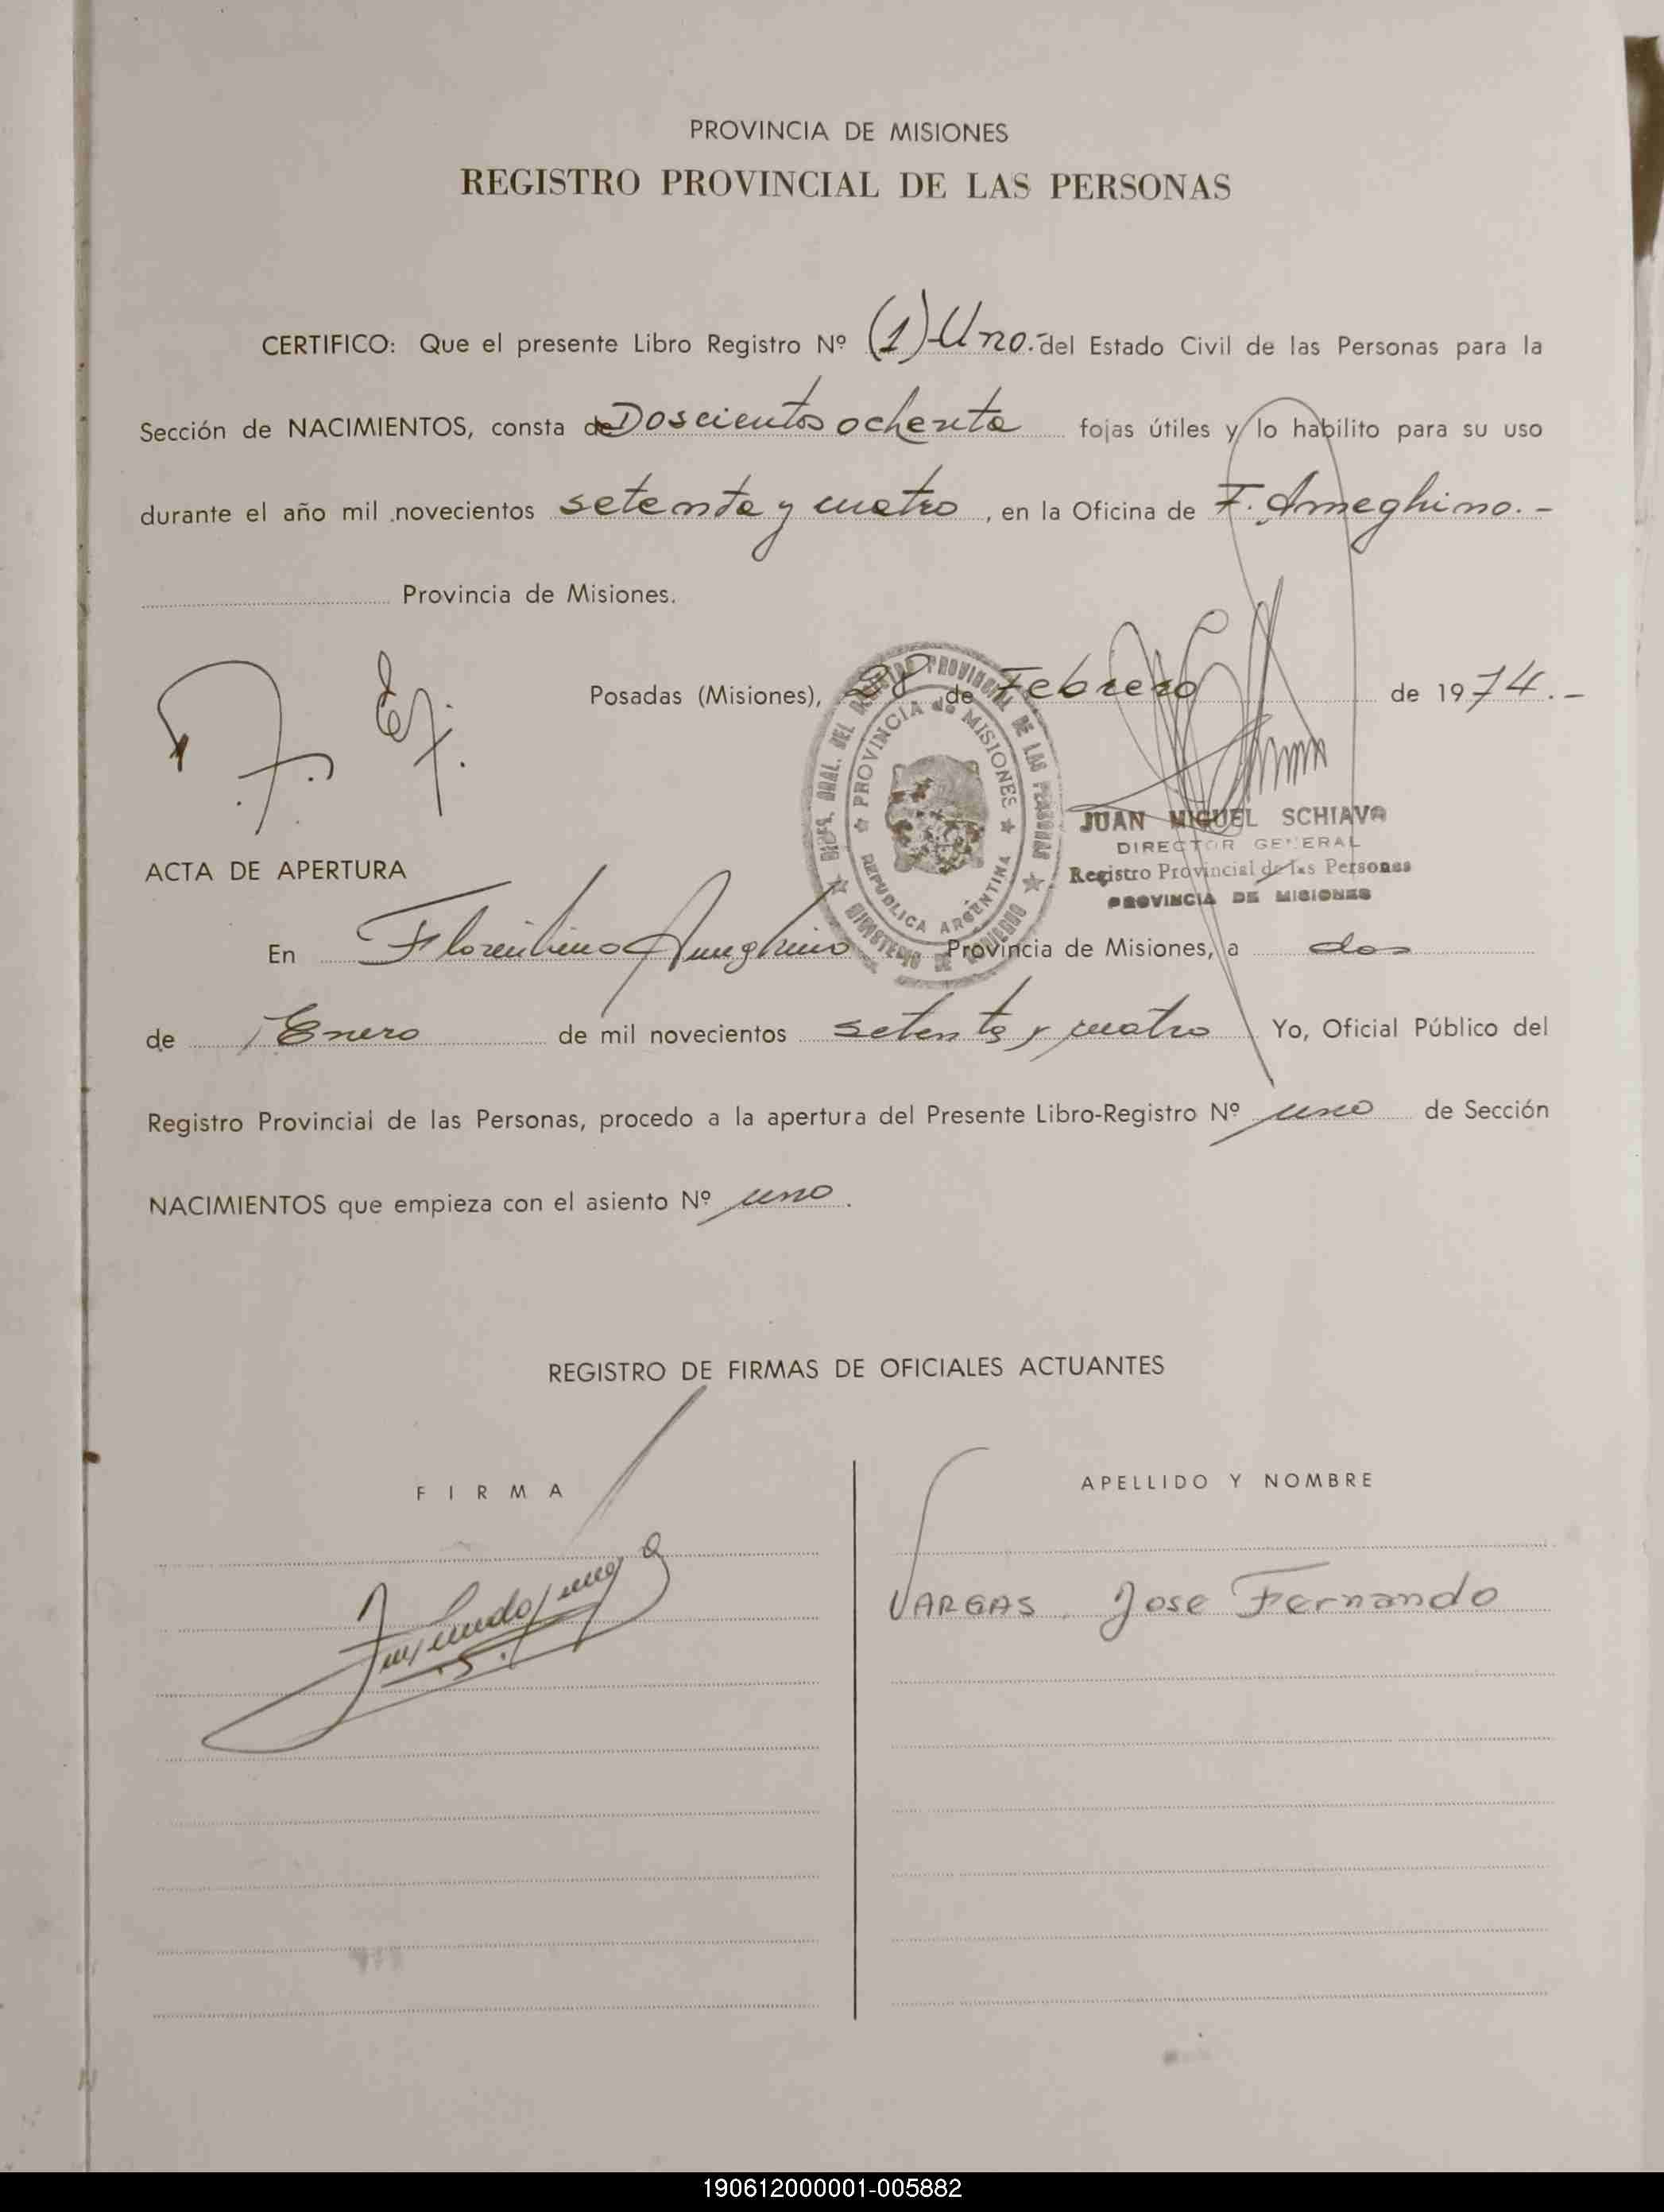 PROVINCIA DE MISIONES
REGISTRO PROVINCIAL DE LAS PERSONAS
CERTIFICO: Que el presente Libro Registro Nº (1) Uno.- del Estado Civil de las Personas para la
Sección de NACIMIENTOS, consta de Doscientos ochenta fojas útiles y lo habilito para su uso
durante el año mil novecientos setenta y cuatro, en la Oficina de F. Ameghino.-
Provincia de Misiones.
Posadas (Misiones), 28 de Febrero de 1974.-
PROVINCIA de MISIONES
REPUBLICA ARGENTINA
JUAN MIGUEL SCHIAVO
DIRECTOR GENERAL
Registro Provincial de las Personas
PROVINCIA DE MISIONES
ACTA DE APERTURA
En Florentino Ameghino Provincia de Misiones, a dos
de Enero de mil novecientos setenta y cuatro Yo, Oficial Público del
Registro Provincial de las Personas, procedo a la apertura del Presente Libro-Registro Nº uno de Sección
NACIMIENTOS que empieza con el asiento Nº uno.
REGISTRO DE FIRMAS DE OFICIALES ACTUANTES
FIRMA
APELLIDO Y NOMBRE
VARGAS, Jose Fernando
190612000001-005882